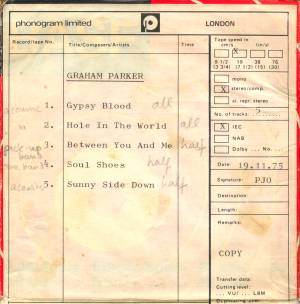 phonogram limited P LONDON
Record/tape No. Title/Composers/Artists Time
Tape speed in
cm/s in/s
X
9 1/2 19 38 76
(3 3/4) (7 1/2) (15) (30)
GRAHAM PARKER
mono
X stereo/comp.
sl. repr. stereo
acoustic 1. Gypsy Blood all
No. of tracks: 5
" 2. Hole In The World all
X IEC
pick-up band 3. Between You And Me half
NAB
Dolby ... No.
4. Soul Shoes half
Date: 19.11.75
acoustic 5. Sunny Side Down half
Signature: PJO
Destination:
Length:
Remarks:
COPY
Transfer data:
Cutting level:
... VU: ... LBM